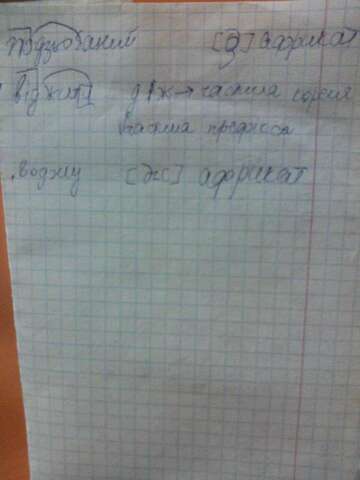 подзьобаний [дз] африкат
віджил д/ж → частина кореня
частина префікса
воджу [дж] африкат